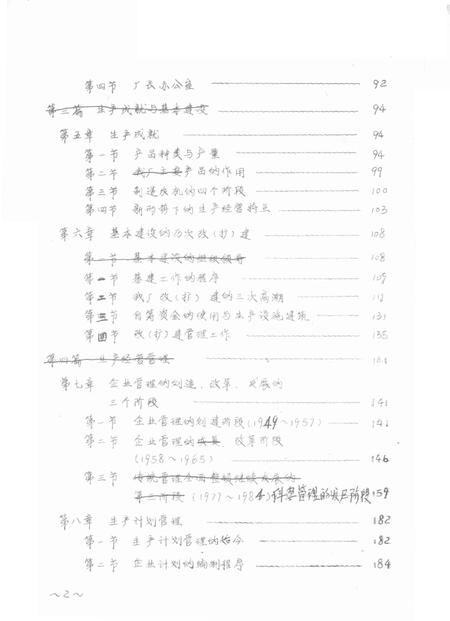 第四节 厂长办公室 92
第三篇 生产成就与基本建设 94
第五章 生产成就 94
第一节 产品种类与产量 94
第二节 我厂主要产品的作用 99
第三节 制造皮机的四个阶段 100
第四节 新形势下的生产经营特点 103
第六章 基本建设的历次改(扩)建 108
第一节 基本建设的组织领导 108
第二节 基建工作的程序 109
第二节 我厂改(扩)建的三次高潮 112
第三节 自筹资金的使用与生产设施建筑 131
第四节 改(扩)建管理工作 135
第四篇 生产经营管理
第七章 企业管理的创造、改革、发展的
三个阶段 141
第一节 企业管理的创建阶段(1949~1957) 141
第二节 企业管理的 改革阶段
(1958~1965) 146
第三节 传统管理全面整顿继续发展的
第三阶段 (1977~1984)科学管理的发展阶段 159
第八章 生产计划管理 182
第一节 生产计划管理的始今 182
第二节 企业计划的编制程序 184
~2~